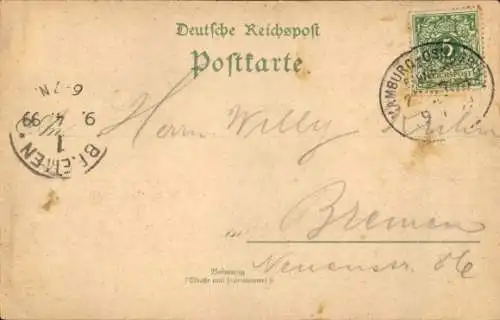 Deutsche Reichspost
Postkarte
HAMBURG
5
6-7N.
9. 4. 99
BREMEN
1
An
Herrn Willy
in Bremen
Wohnung
(Straße und Hausnummer)